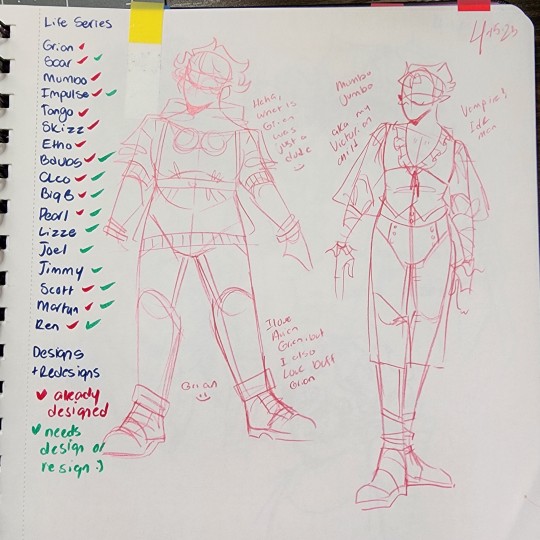 Life Series
Grian
Scar
Mumbo
Impulse
Tango
Skizz
Etho
Bdubs
Cleo
BigB
Pearl
Lizze
Joel
Jimmy
Scott
Martyn
Ren
Designs
+Redesigns
already
designed
needs
design or
resign :)
Haha,
what is
Grian
was
just a
dude
:)
Grian
:)
I love
Avian
Grian, but
I also
Love buff
Grian
Mumbo
Jumbo
aka my
Victorian
child
Vampire?
Idk
man